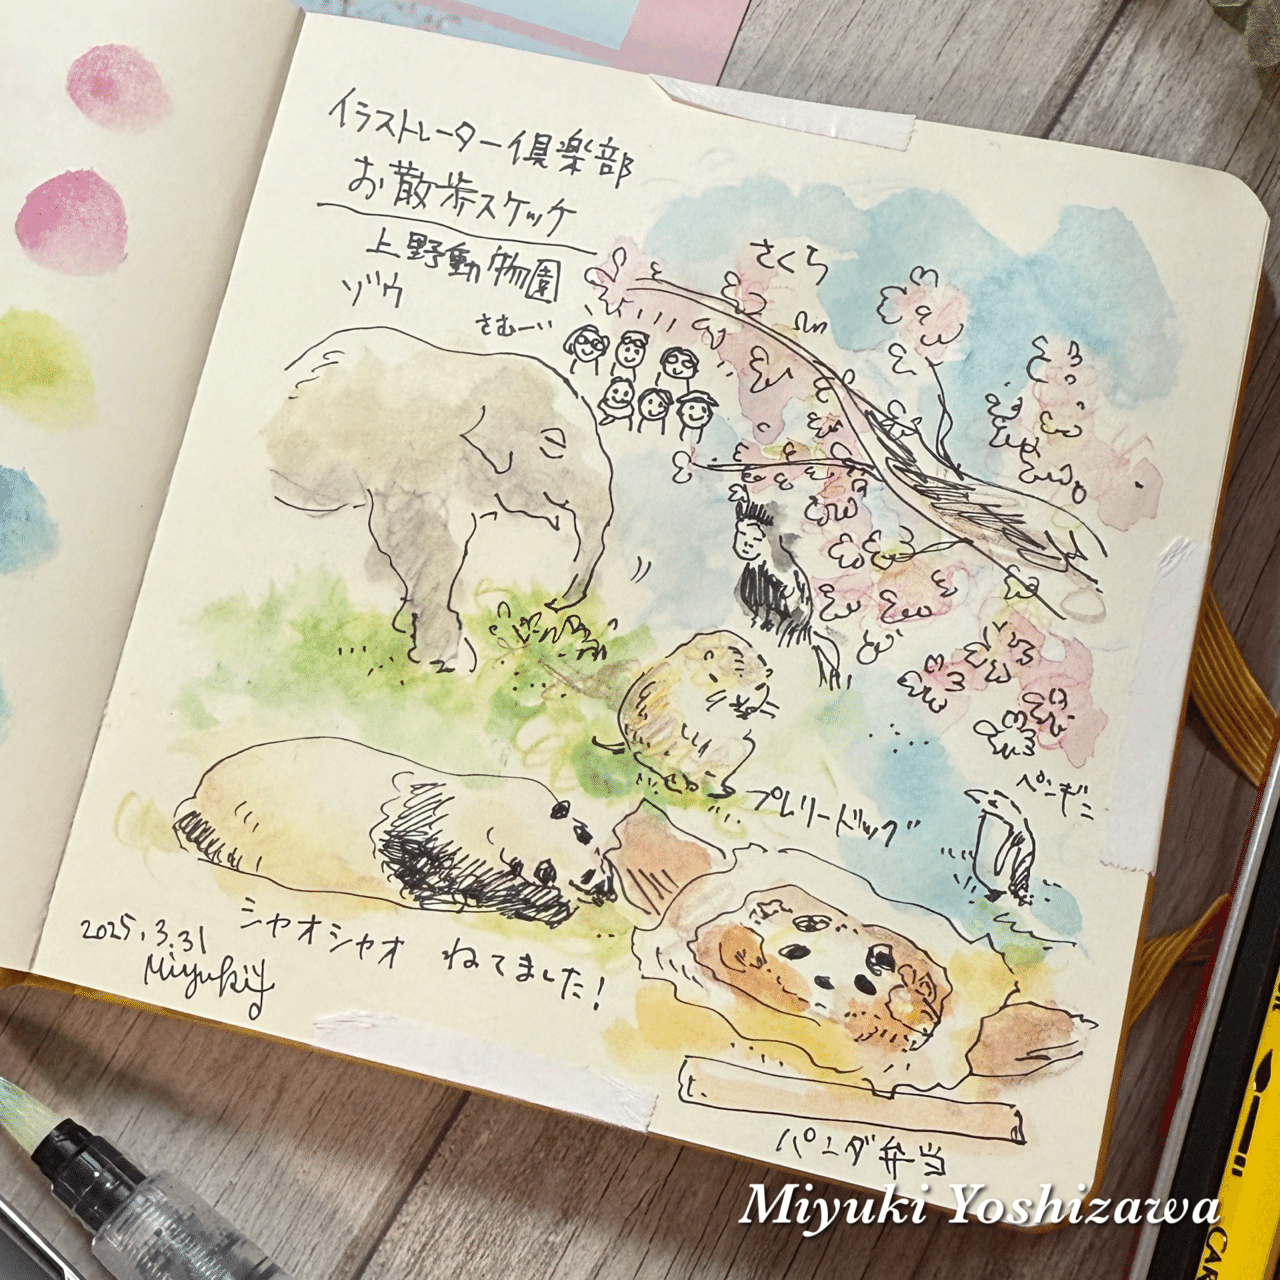 イラストレーター倶楽部
お散歩スケッチ
上野動物園
ゾウ
さむーい
さくら
プレリードッグ
ペンギン
シャオシャオ ねてました!
2025.3.31
MiyukiY
パンダ弁当
Miyuki Yoshizawa